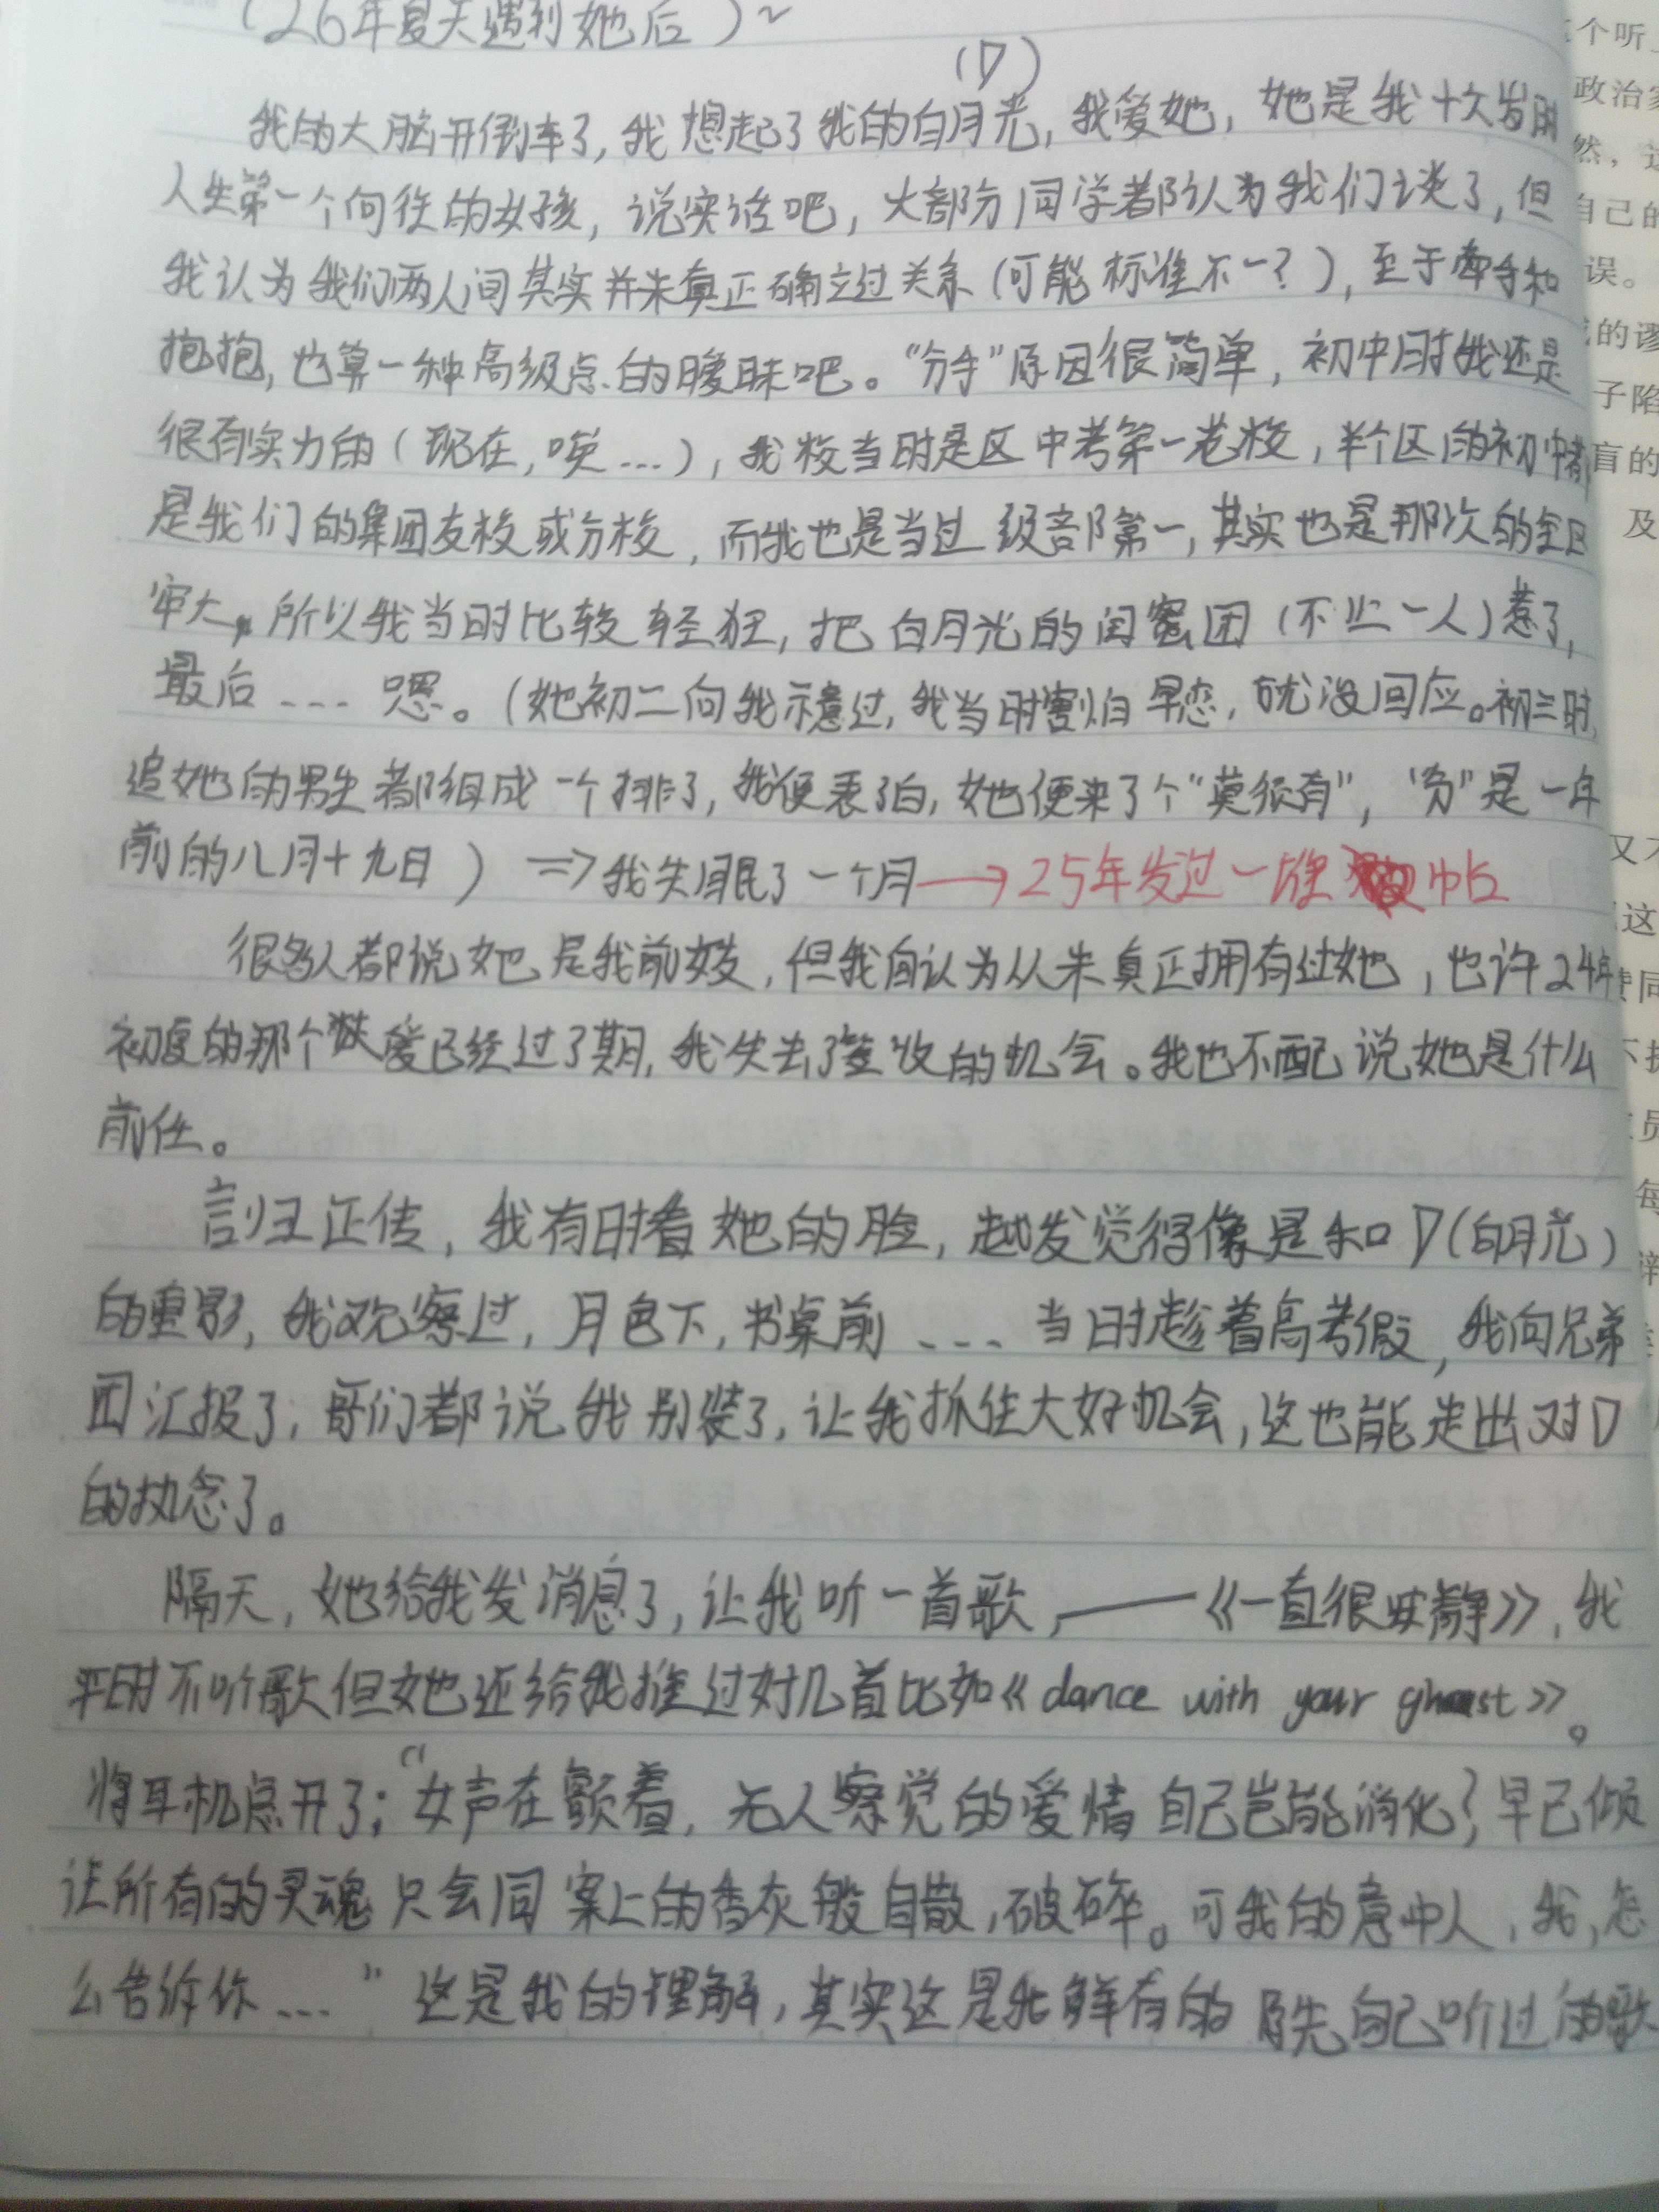 (26年夏天遇到她后)~
(D)
我的大脑开倒车了,我想起了我的白月光,我爱她,她是我十六岁的
人生第一个向往的女孩,说实话吧,大部分同学都认为我们谈了,但
我认为我们两人间其实并未真正确立过关系(可能标准不一?),至于牵手和
抱抱,也算一种高级点的暧昧吧。“分手”原因很简单,初中时我还是
很有实力的(现在,唉...),我校当时是区中考第一老校,半个区的初中都
是我们的集团友校或分校,而我也是当过级部第一,其实也是那次的全区
牢大,所以我当时比较轻狂,把白月光的闺蜜团(不止一人)惹了,
最后...嗯。(她初二向我示意过,我当时害怕早恋,就没回应。初三时,
追她的男生都组成一个排了,我便表了白,她也便来了个“莫须有”,“分”是一年
前的八月十九日)⇒我失眠了一个月→25年发过一堆帖
很多人都说她是我前女友,但我自认为从未真正拥有过她,也许24年
初夏的那个爱已经过了期,我失去了签收的机会。我也不配说她是什么
前任。
言归正传,我有时看她的脸,越发觉得像是和D(白月光)
的重影,我观察过,月色下,书桌前...当时趁着高考假,我向兄弟
团汇报了,哥们都说我别装了,让我抓住大好机会,这也能走出对D
的执念了。
隔天,她给我发消息了,让我听一首歌,——《一直很安静》,我
平时不听歌但她还给我推过好几首比如《dance with your ghost》。
将耳机意开了;“女声在颤着,无人察觉的爱情自己岂能消化?早已倾
让所有的灵魂只会同案上的香灰般自散,破碎。可我的意中人,我,怎
么告诉你...”这是我的理解,其实这是我鲜有的原先自己听过的歌